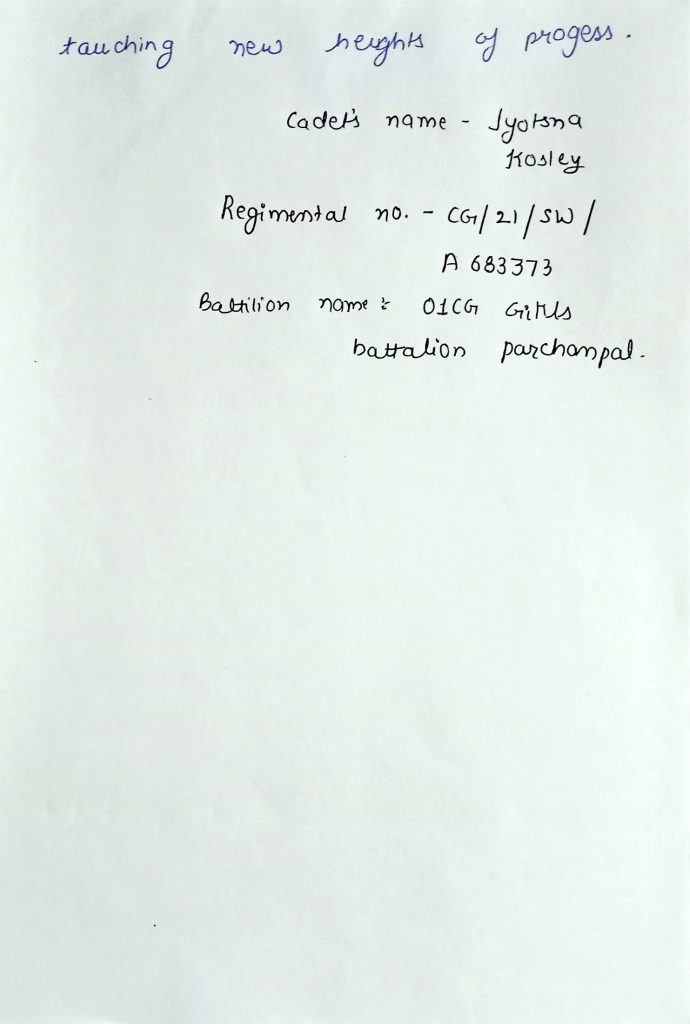 tauching new heights of progess.
Cadet's name - Jyotsna
Kosley
Regimental no. - CG/21/SW/
A 683373
Battilion name :- 01CG Girls
battalion parchanpal.